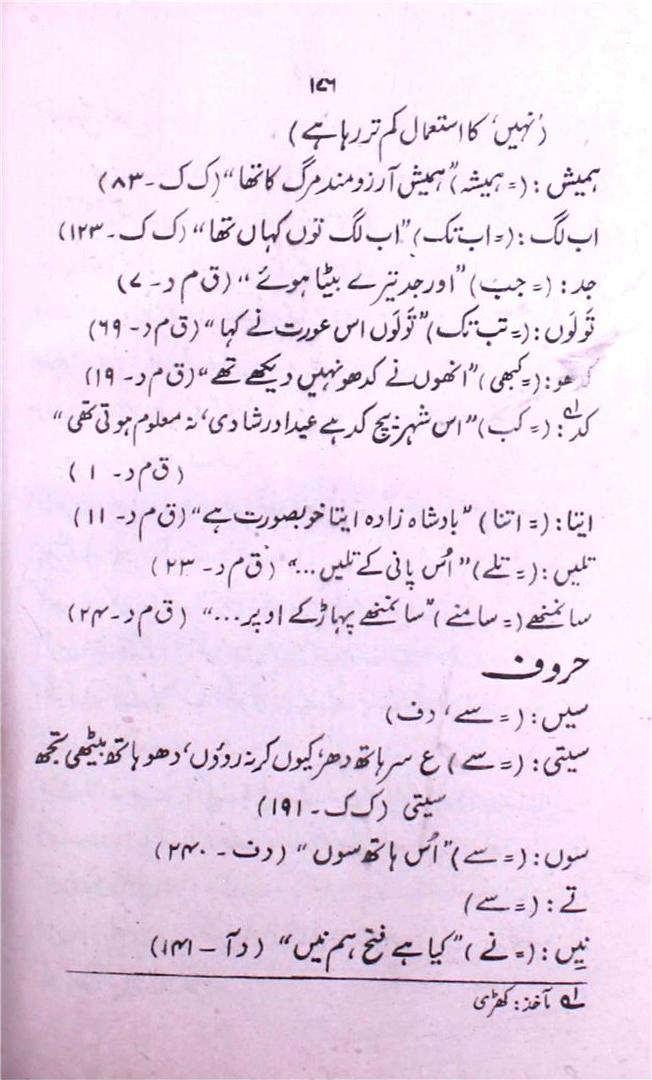 ۱۷۶
('نہیں' کا استعمال کم تر رہا ہے)
ہمیش : (= ہمیشہ) "ہمیش آرزو مند مرگ کا تھا" (ک ک ۔ ۸۳)
اب لگ : (= اب تک) "اب لگ توں کہاں تھا" (ک ک ۔ ۱۲۳)
جد : (= جب) "اور جد تیرے بیٹا ہوئے" (ق م د ۔ ۷)
تَولَوں : (= تب تک) "تَولَوں اس عورت نے کہا" (ق م د ۔ ۶۹)
کدھو : (= کبھی) "انھوں نے کدھو نہیں دیکھے تھے" (ق م د ۔ ۱۹)
کد۱؎ : (= کب) "اس شہر بیچ کد ہے عید اور شادی، نہ معلوم ہوتی تھی"
(ق م د ۔ ۱)
ایتا : (= اتنا) "بادشاہ زادہ ایتا خوبصورت ہے" (ق م د ۔ ۱۱)
تلیں : (= تلے) "اُس پانی کے تلیں ..." (ق م د ۔ ۲۳)
سانمنھے (= سامنے) "سانمنھے پہاڑ کے اوپر ..." (ق م د ۔ ۲۴)
حروف
سیں : (= سے، دف)
سیتی : (= سے) ع سر ہاتھ دھر، کیوں کر نہ روؤں، دھو ہاتھ بیٹھی تجھ
سیتی (ک ک ۔ ۱۹۱)
سوں : (= سے) "اُس ہاتھ سوں" (دف ۔ ۲۴۰)
تے : (= سے)
نیں : (= نے) "کیا ہے فتح ہم نیں" (دآ ۔ ۱۴۱)
۱؎ مآخذ : کھڑی